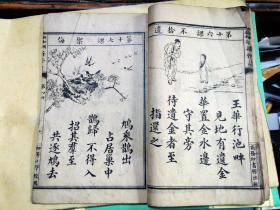 第十六課 不拾遺
王華行池畔
見地有遺金
華置金水邊
守其旁
待遺金者至
指還之
第十七課 禦侮
鳩乘鵲出
占居巢中
鵲歸不得入
招其羣至
共逐鳩去